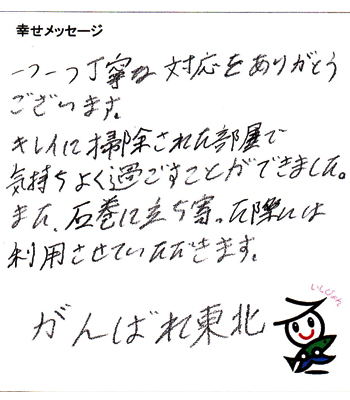 幸せメッセージ
一つ一つ丁寧な対応をありがとう
ございます。
キレイに掃除された部屋で
気持ちよく過ごすことができました。
また、石巻に立ち寄った際には
利用させていただきます。
がんばれ東北
いしぴょん